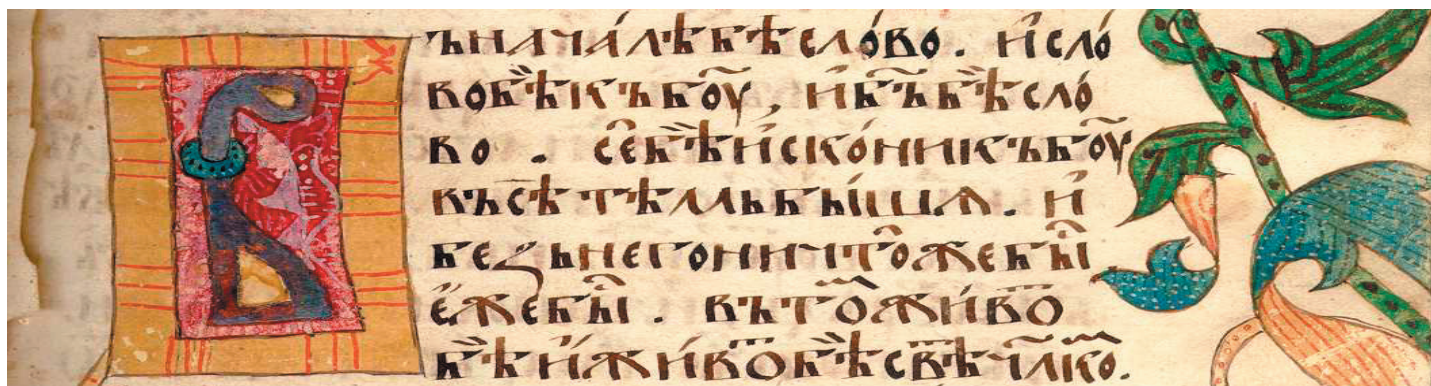 Вънача́лѣбѣсло́во. и҆сло́
вобѣ̏къбоу҃, и҆б҃ъбѣ̏сло́
во. се҆бѣ̏и҆ско́никъбоу҃
въсѣ̀тѣ́мьбы́шѧ. и҆
безьнегоничтѡ̑жебы̑
е҆́жебы̑. вътоⷨжи́воⷮ
бѣ̏и҆жи́воⷮбѣ̏свѣⷮч҃лкоⷨ.